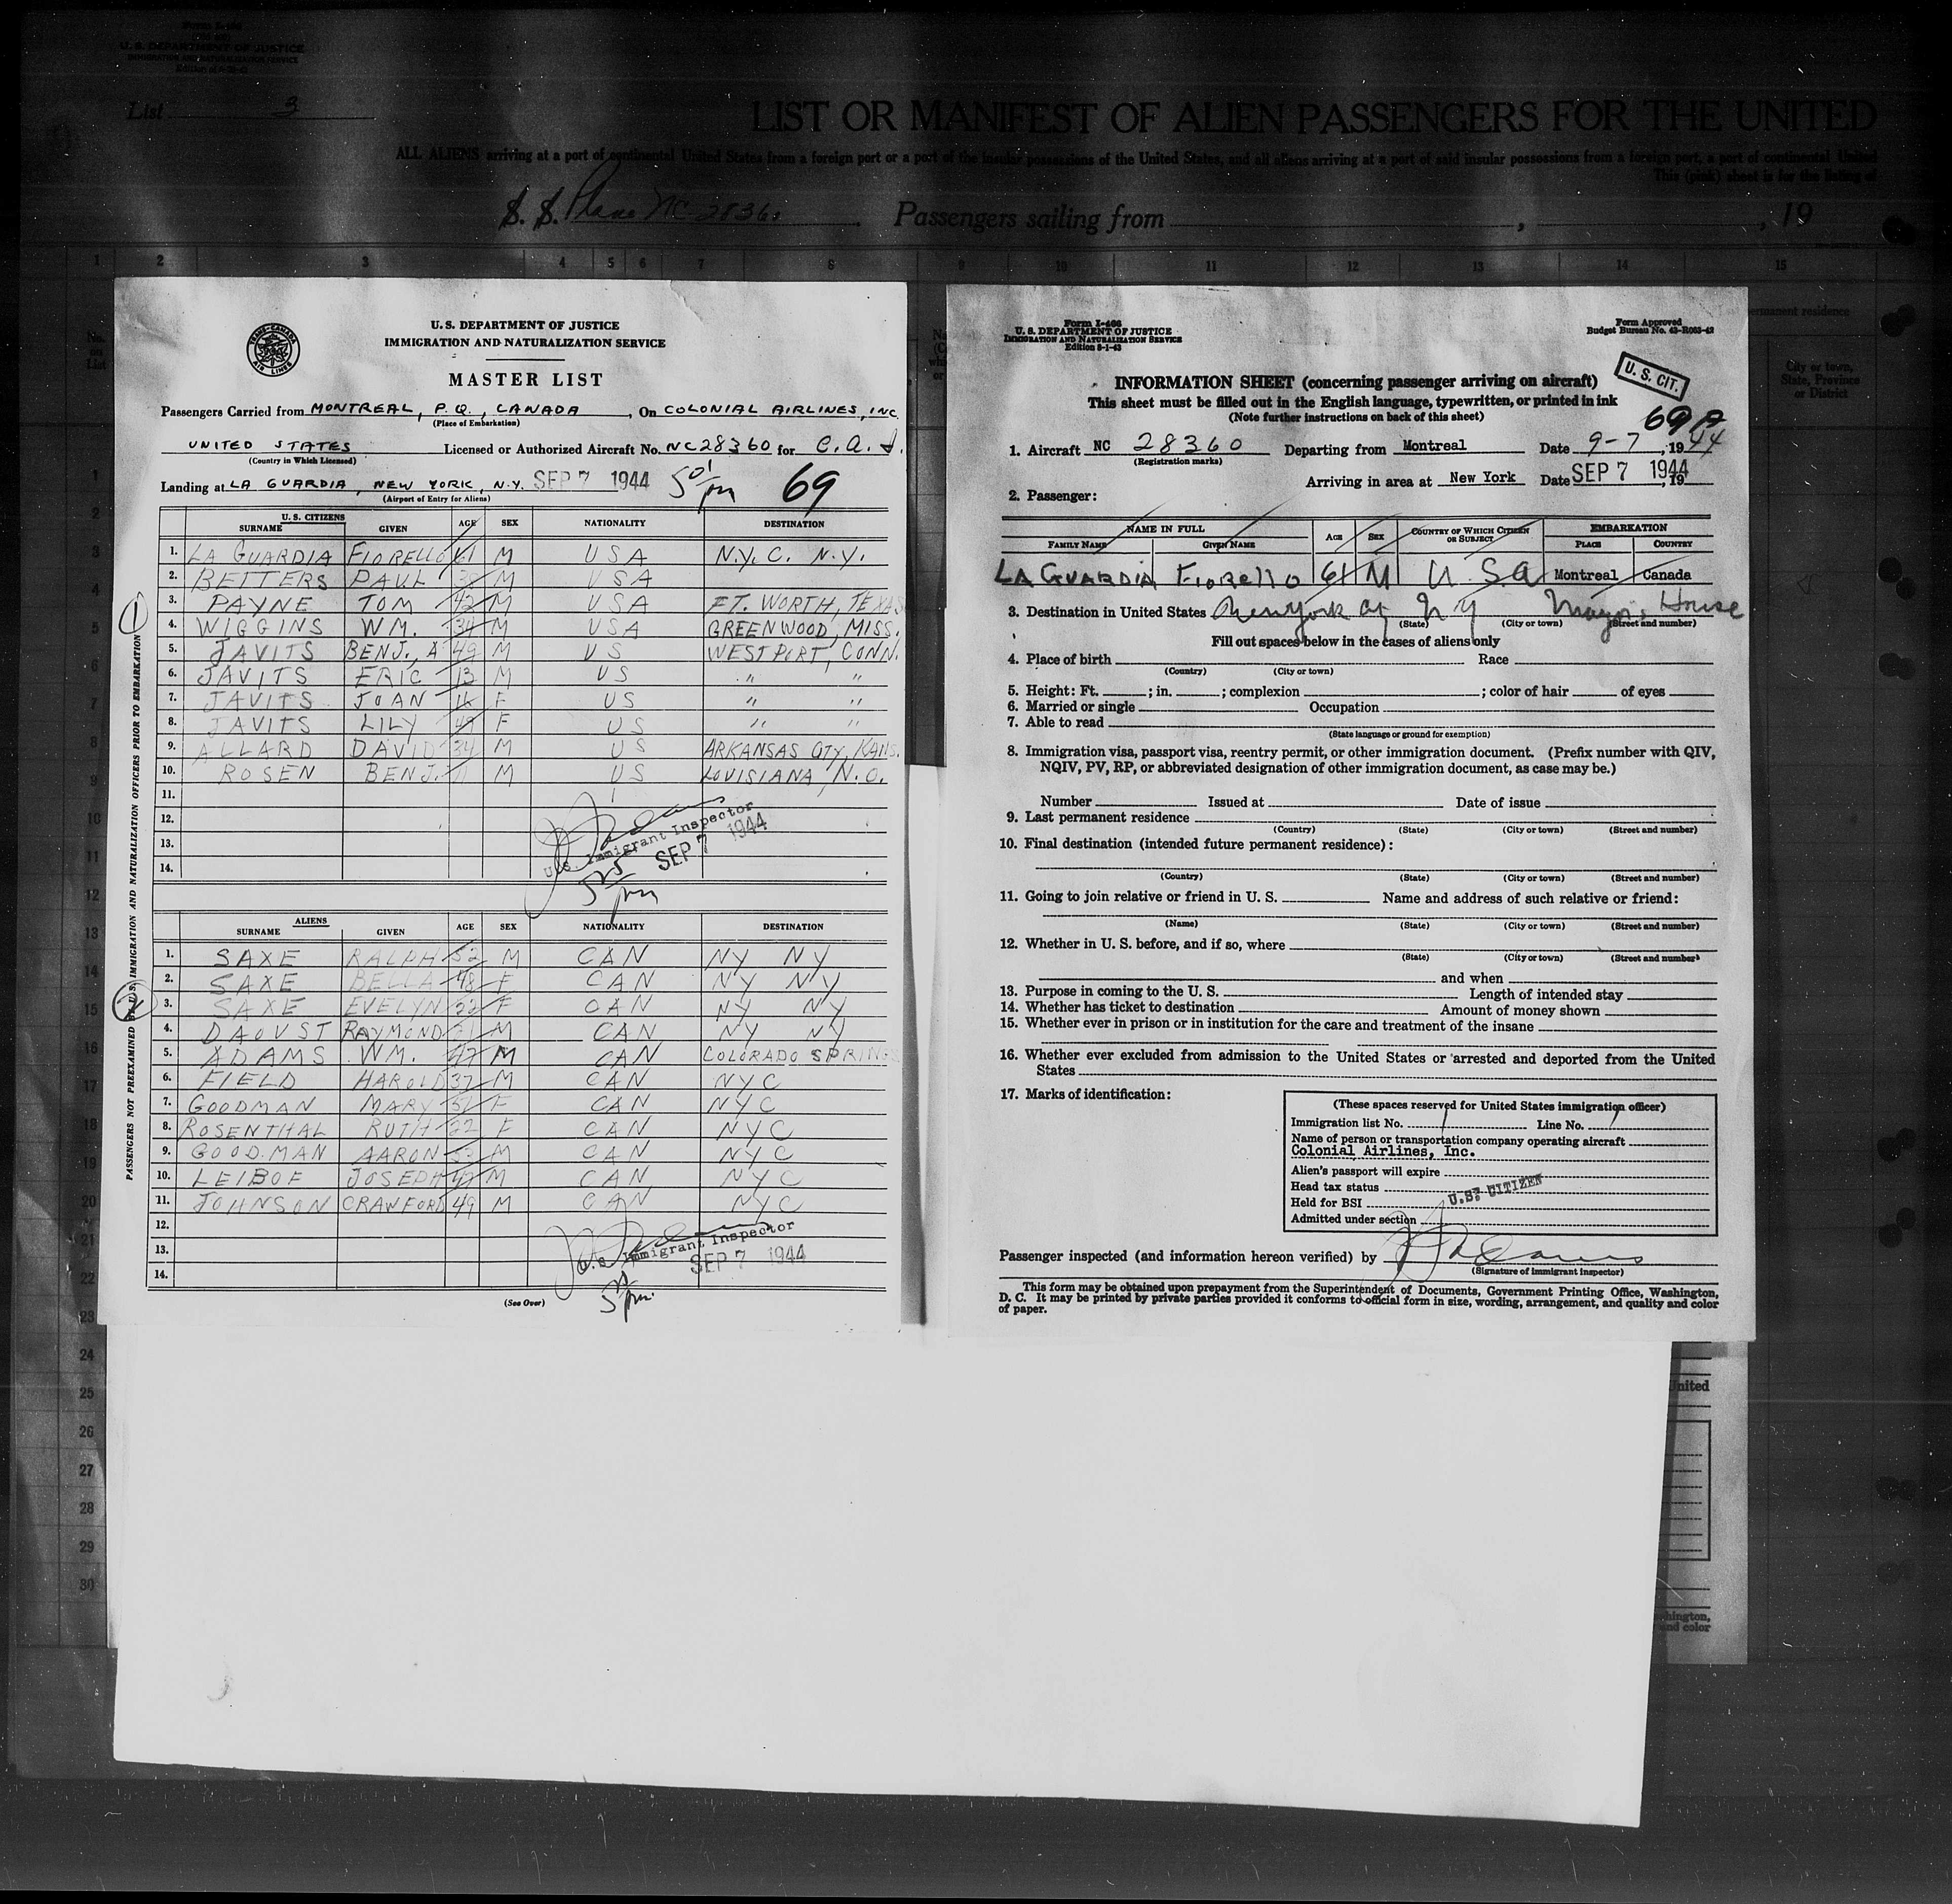 Form I-466
U. S. DEPARTMENT OF JUSTICE
IMMIGRATION AND NATURALIZATION SERVICE
List 3
LIST OR MANIFEST OF ALIEN PASSENGERS FOR THE UNITED
ALL ALIENS arriving at a port of continental United States from a foreign port or a port of the insular possessions of the United States, and all aliens arriving at a port of said insular possessions from a foreign port, a port of continental United
This (pink) sheet is for the listing of
S. S. Plane NC 28360 Passengers sailing from , , 19
1 2 3 4 5 6 7 8 9 10 11 12 13 14 15
TRANS-CANADA AIR LINES
U. S. DEPARTMENT OF JUSTICE
IMMIGRATION AND NATURALIZATION SERVICE
MASTER LIST
Passengers Carried from MONTREAL, P.Q., CANADA, On COLONIAL AIRLINES, INC.
(Place of Embarkation)
UNITED STATES Licensed or Authorized Aircraft No. NC28360 for C. A. I.
(Country in Which Licensed)
Landing at LA GUARDIA, NEW YORK, N.Y. SEP 7 1944 5 01 pm 69
(Airport of Entry for Aliens)
U. S. CITIZENS
SURNAME GIVEN AGE SEX NATIONALITY DESTINATION
1. LA GUARDIA FIORELLO 61 M USA N.Y.C. N.Y.
2. BETTERS PAUL 38 M USA
3. PAYNE TOM 42 M USA FT. WORTH, TEXAS
4. WIGGINS WM. 34 M USA GREENWOOD, MISS.
5. JAVITS BENJ., A 49 M US WESTPORT, CONN.
6. JAVITS ERIC 13 M US " "
7. JAVITS JOAN 16 F US " "
8. JAVITS LILY 49 F US " "
9. ALLARD DAVID 34 M US ARKANSAS CITY, KANS.
10. ROSEN BENJ. M US LOUISIANA, N.O.
11.
12.
13.
14.
U.S. Immigrant Inspector
SEP 7 1944
5 25 pm
ALIENS
SURNAME GIVEN AGE SEX NATIONALITY DESTINATION
1. SAXE RALPH 52 M CAN NY NY
2. SAXE BELLA 48 F CAN NY NY
3. SAXE EVELYN 22 F CAN NY NY
4. DAOUST RAYMOND 21 M CAN NY NY
5. ADAMS WM. 47 M CAN COLORADO SPRINGS
6. FIELD HAROLD 37 M CAN NYC
7. GOODMAN MARY 51 F CAN NYC
8. ROSENTHAL RUTH 22 F CAN NYC
9. GOODMAN AARON M CAN NYC
10. LEIBOF JOSEPH 47 M CAN NYC
11. JOHNSON CRAWFORD 49 M CAN NYC
12.
13.
14.
U.S. Immigrant Inspector
SEP 7 1944
(See Over)
PASSENGERS NOT PREEXAMINED BY U.S. IMMIGRATION AND NATURALIZATION OFFICERS PRIOR TO EMBARKATION
1
2
Form I-466
U. S. DEPARTMENT OF JUSTICE
IMMIGRATION AND NATURALIZATION SERVICE
Edition 8-1-43
Form Approved
Budget Bureau No. 43-R065-42
U. S. CIT.
INFORMATION SHEET (concerning passenger arriving on aircraft)
This sheet must be filled out in the English language, typewritten, or printed in ink
(Note further instructions on back of this sheet)
69
1. Aircraft NC 28360 Departing from Montreal Date 9-7, 1944
(Registration marks)
Arriving in area at New York Date SEP 7 1944, 19
2. Passenger:
NAME IN FULL AGE SEX COUNTRY OF WHICH CITIZEN OR SUBJECT EMBARKATION
FAMILY NAME GIVEN NAME PLACE COUNTRY
LA GUARDIA Fiorello 61 M U.S.A Montreal Canada
3. Destination in United States New York City N Y Mayor's House
(State) (City or town) (Street and number)
Fill out spaces below in the cases of aliens only
4. Place of birth Race
(Country) (City or town)
5. Height: Ft. ; in. ; complexion ; color of hair of eyes
6. Married or single Occupation
7. Able to read
(State language or ground for exemption)
8. Immigration visa, passport visa, reentry permit, or other immigration document. (Prefix number with QIV,
NQIV, PV, RP, or abbreviated designation of other immigration document, as case may be.)
Number Issued at Date of issue
9. Last permanent residence
(Country) (State) (City or town) (Street and number)
10. Final destination (intended future permanent residence):
(Country) (State) (City or town) (Street and number)
11. Going to join relative or friend in U. S. Name and address of such relative or friend:
(Name) (State) (City or town) (Street and number)
12. Whether in U. S. before, and if so, where
(State) (City or town) (Street and number)
and when
13. Purpose in coming to the U. S. Length of intended stay
14. Whether has ticket to destination Amount of money shown
15. Whether ever in prison or in institution for the care and treatment of the insane
16. Whether ever excluded from admission to the United States or arrested and deported from the United
States
17. Marks of identification:
(These spaces reserved for United States immigration officer)
Immigration list No. 1 Line No. 1
Name of person or transportation company operating aircraft
Colonial Airlines, Inc.
Alien's passport will expire
Head tax status
Held for BSI U.S. CITIZEN
Admitted under section
Passenger inspected (and information hereon verified) by
(Signature of Immigrant Inspector)
This form may be obtained upon prepayment from the Superintendent of Documents, Government Printing Office, Washington,
D. C. It may be printed by private parties provided it conforms to official form in size, wording, arrangement, and quality and color
of paper.
permanent residence
City or town,
State, Province
or District
United
Washington,
and color